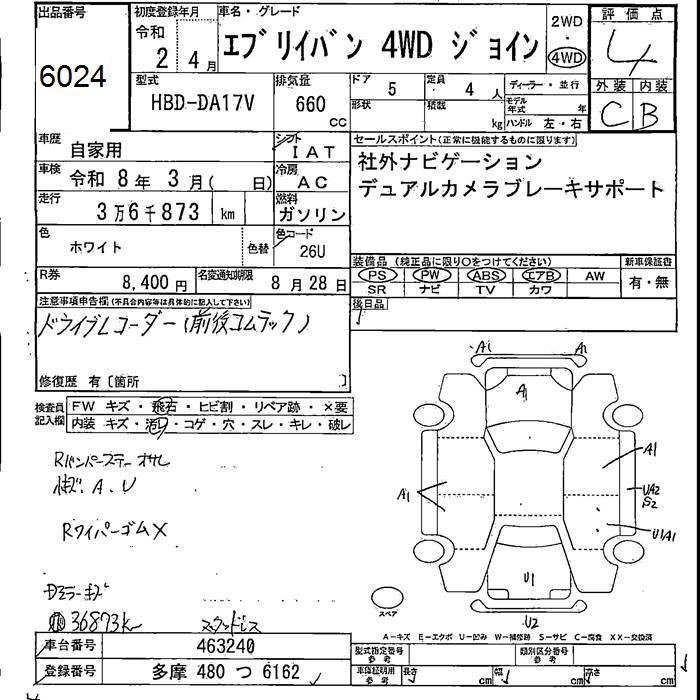 出品番号 初度登録年月 車名・グレード 2WD 評価点
6024 令和 2年 4月 エブリイバン 4WD ジョイン 4WD 4
型式 排気量 ドア 5 定員 4人 ディーラー・並行 外装 内装
HBD-DA17V 660 cc 形状 積載 kg モデル年式 年 C B
ハンドル 左・右
車歴 自家用 シフト IAT セールスポイント(正常に機能するものに限ります)
車検 令和 8年 3月( 日) 冷房 AC 社外ナビゲーション
走行 3万6千873 km 燃料 ガソリン デュアルカメラブレーキサポート
色 ホワイト 色替 色コード 26U
装備品 (純正品に限り○をつけてください) 新車保証書
R券 8,400円 名変通知期限 8月28日 PS PW ABS エアB AW 有・無
SR ナビ TV カワ
注意事項申告欄(不具合内容等は具体的に記入して下さい) 後日品
ドライブレコーダー(前後コムテック)
修復歴 有〔箇所 〕
検査員記入欄 FW キズ・飛石・ヒビ割・リペア跡・×要
内装 キズ・汚レ・コゲ・穴・スレ・キレ・破レ
A1 A1
A1
A1
A1
UA2
S2
U1A1
U1
U2
Rバンパーステー オサレ
小キズ. A. U
RワイパーゴムX
ドアミラーキズ
36873k スタッドレス
スペア
A-キズ E-エクボ U-凹み W-補修跡 S-サビ C-腐食 XX-交換済
車台番号 463240 型式指定番号 参考 類別区分番号 参考
登録番号 多摩 480 つ 6162 車庫証明用 参考 長さ cm 幅 cm 高さ cm